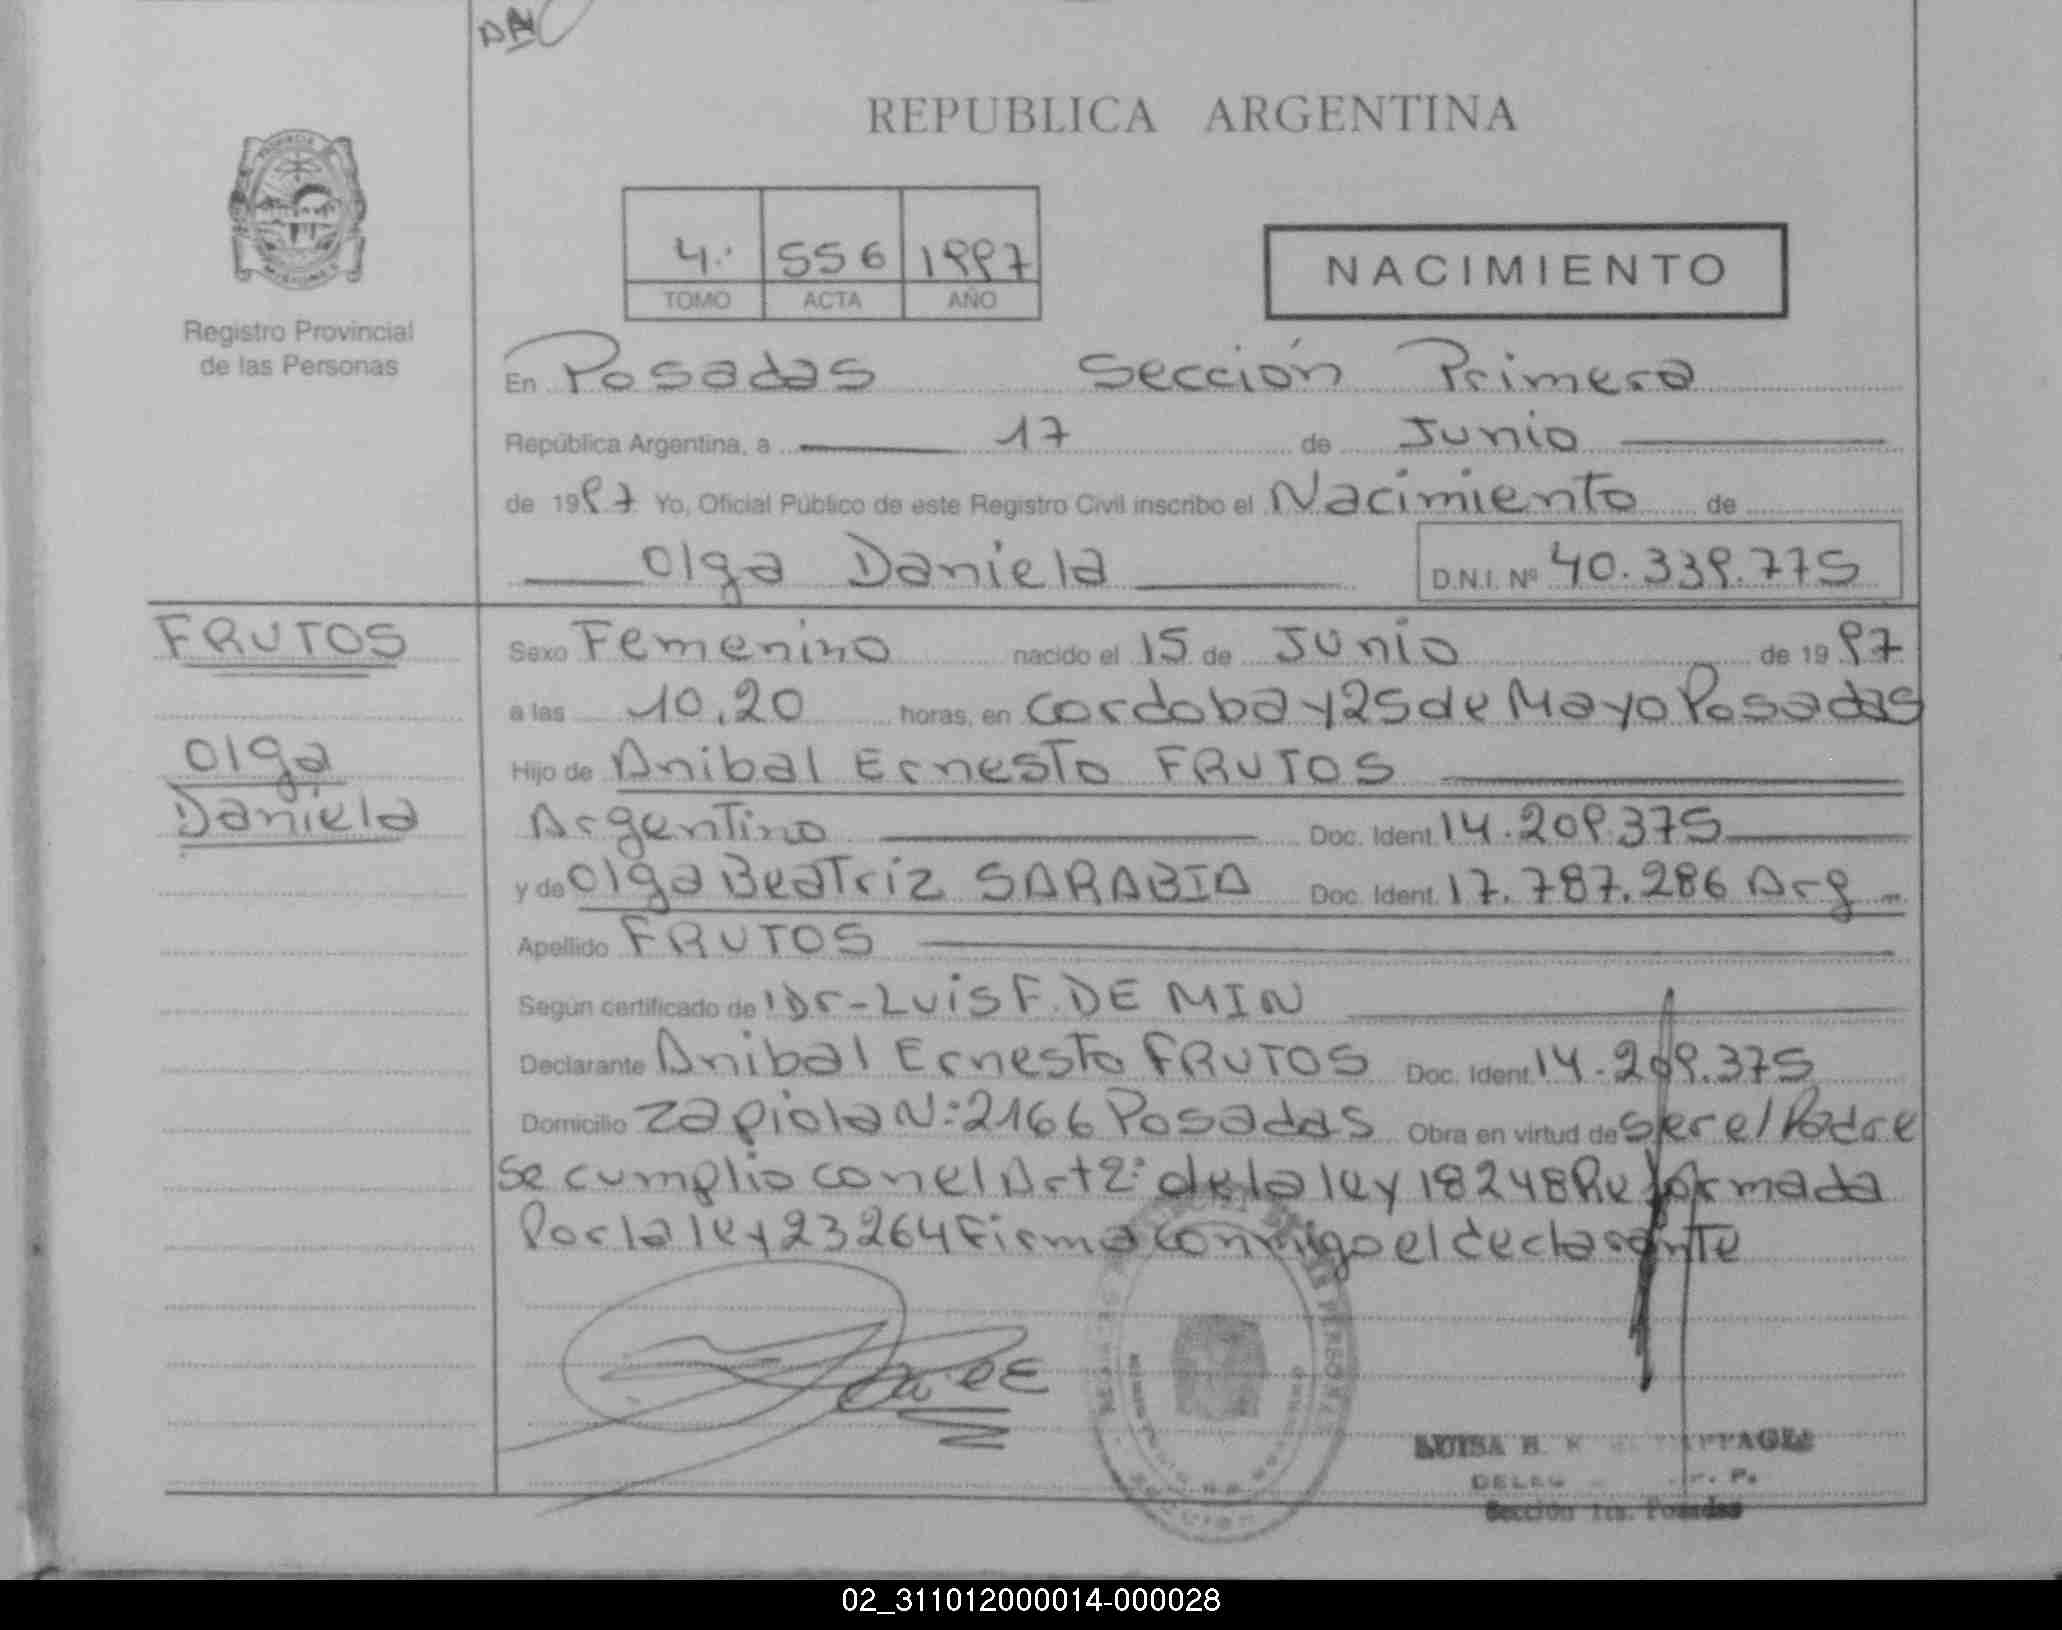 REPUBLICA ARGENTINA
4.º 556 1997
TOMO ACTA AÑO
NACIMIENTO
Registro Provincial
de las Personas
En Posadas Sección Primera
República Argentina, a 17 de Junio
de 1997 Yo, Oficial Público de este Registro Civil inscribo el Nacimiento de
Olga Daniela D.N.I. Nº 40.339.775
FRUTOS
Olga
Daniela
Sexo Femenino nacido el 15 de Junio de 1997
a las 10.20 horas, en cordoba y 25 de Mayo Posadas
Hijo de Anibal Ernesto FRUTOS
Argentino Doc. Ident. 14.209.375
y de Olga Beatriz SARABIA Doc. Ident. 17.787.286 Arg
Apellido FRUTOS
Según certificado de Dr-Luis F. DE MIN
Declarante Anibal Ernesto FRUTOS Doc. Ident. 14.209.375
Domicilio Zapiola Nº 2166 Posadas Obra en virtud de ser el Padre
Se cumplio con el Art 2º de la ley 18248 Reformada
Por la ley 23264 Firma conmigo el declarante
LUISA H.
Sección 1ra. Posadas
02_311012000014-000028